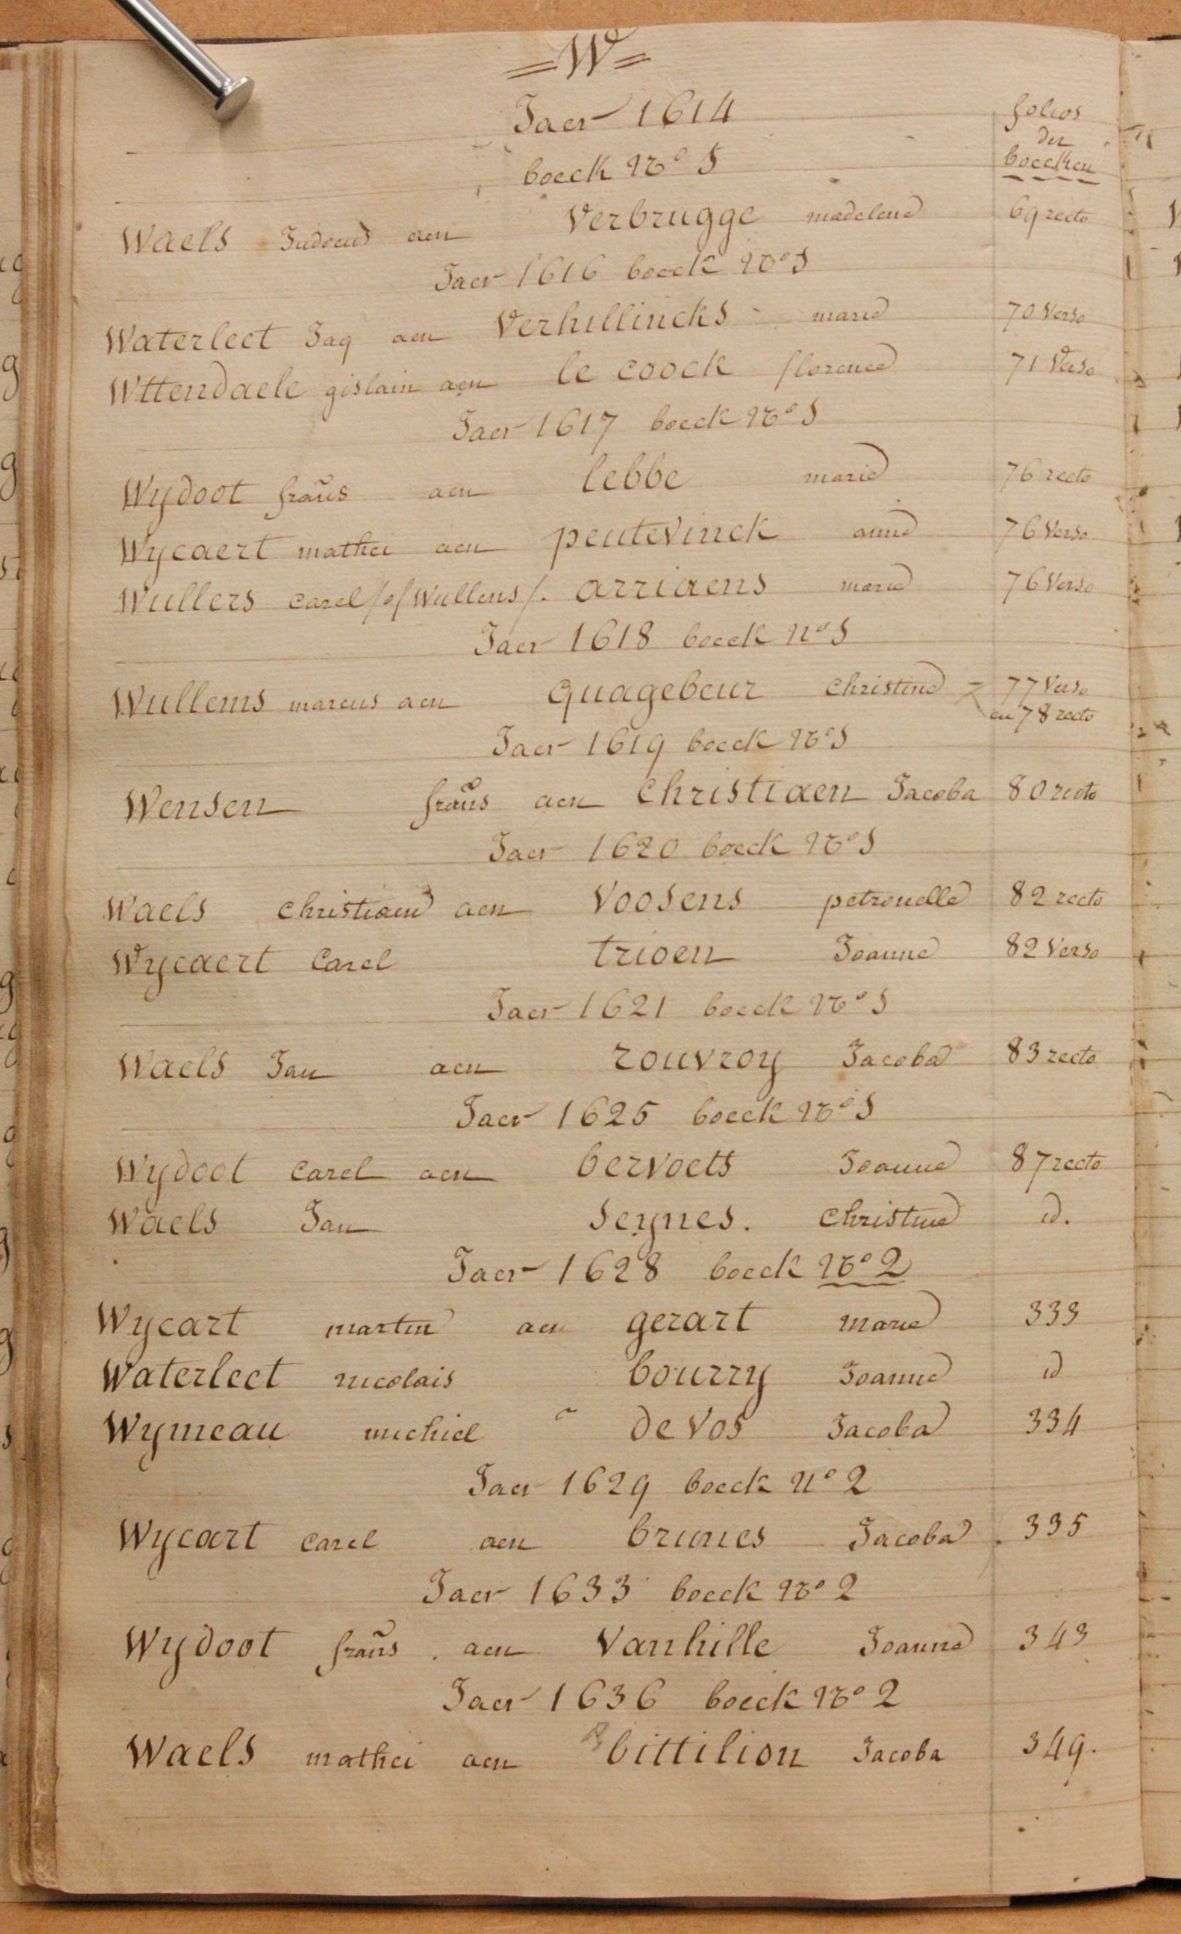 =W=
Jaer 1614
folios
der
boecken
boeck No 1
Waels Judocus aen Verbrugge madelene 69 recto
Jaer 1616 boeck No 1
Waterleet Jaq aen Verhillincks marie 70 Verso
Wttendaele gislain aen le coock florence 71 Verso
Jaer 1617 boeck No 1
Wydoot frañs aen lebbe marie 76 recto
Wycaert mathei aen peutevinck anne 76 Verso
Wullers carel /of Wullens/. arriaens marie 76 Verso
Jaer 1618 boeck no 1
Wullems marcus aen quagebeur christine 77 Verso
en 78 recto
Jaer 1619 boeck No 1
Wensen frañs aen christiaen Jacoba 80 recto
Jaer 1620 boeck No 1
Waels christiaen aen Voosens petronelle 82 recto
Wycaert Carel trioen Joanne 82 Verso
Jaer 1621 boeck No 1
Waels Jan aen rouvroy Jacoba 83 recto
Jaer 1625 boeck No 1
Wydoot carel aen bervoets Joanne 87 recto
Waels Jan seynes. christine id.
Jaer 1628 boeck No 2
Wycart martin aen gerart marie 333
Waterleet nicolais bourry Joanne id
Wymeau michiel " de Vos Jacoba 334
Jaer 1629 boeck no 2
Wycart carel aen brunes Jacoba. 335
Jaer 1633 boeck No 2
Wydoot frañs aen Vanhille Joanne 343
Jaer 1636 boeck No 2
Waels mathei aen bittilion Jacoba 349.